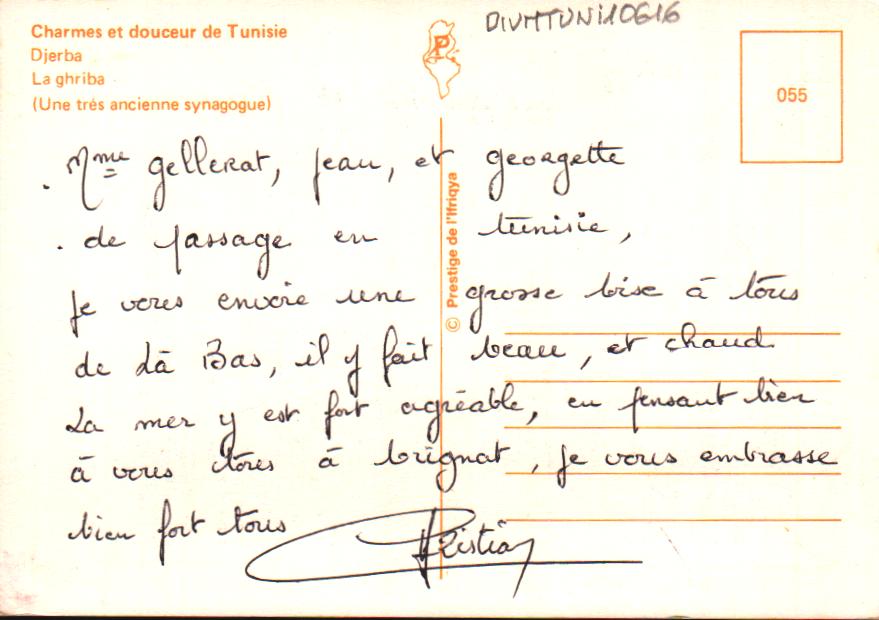 Charmes et douceur de Tunisie
Djerba
La ghriba
(Une trés ancienne synagogue)
DIVMTUNI10616
P
055
© Prestige de l'Ifriqya
Mme gellerat, jean, et georgette
de passage en tunisie,
je vous envoie une grosse bise à tous
de Là Bas, il y fait beau, et chaud
La mer y est fort agréable, en pensant bien
à vous tous à brignat, je vous embrasse
bien fort tous
Christian